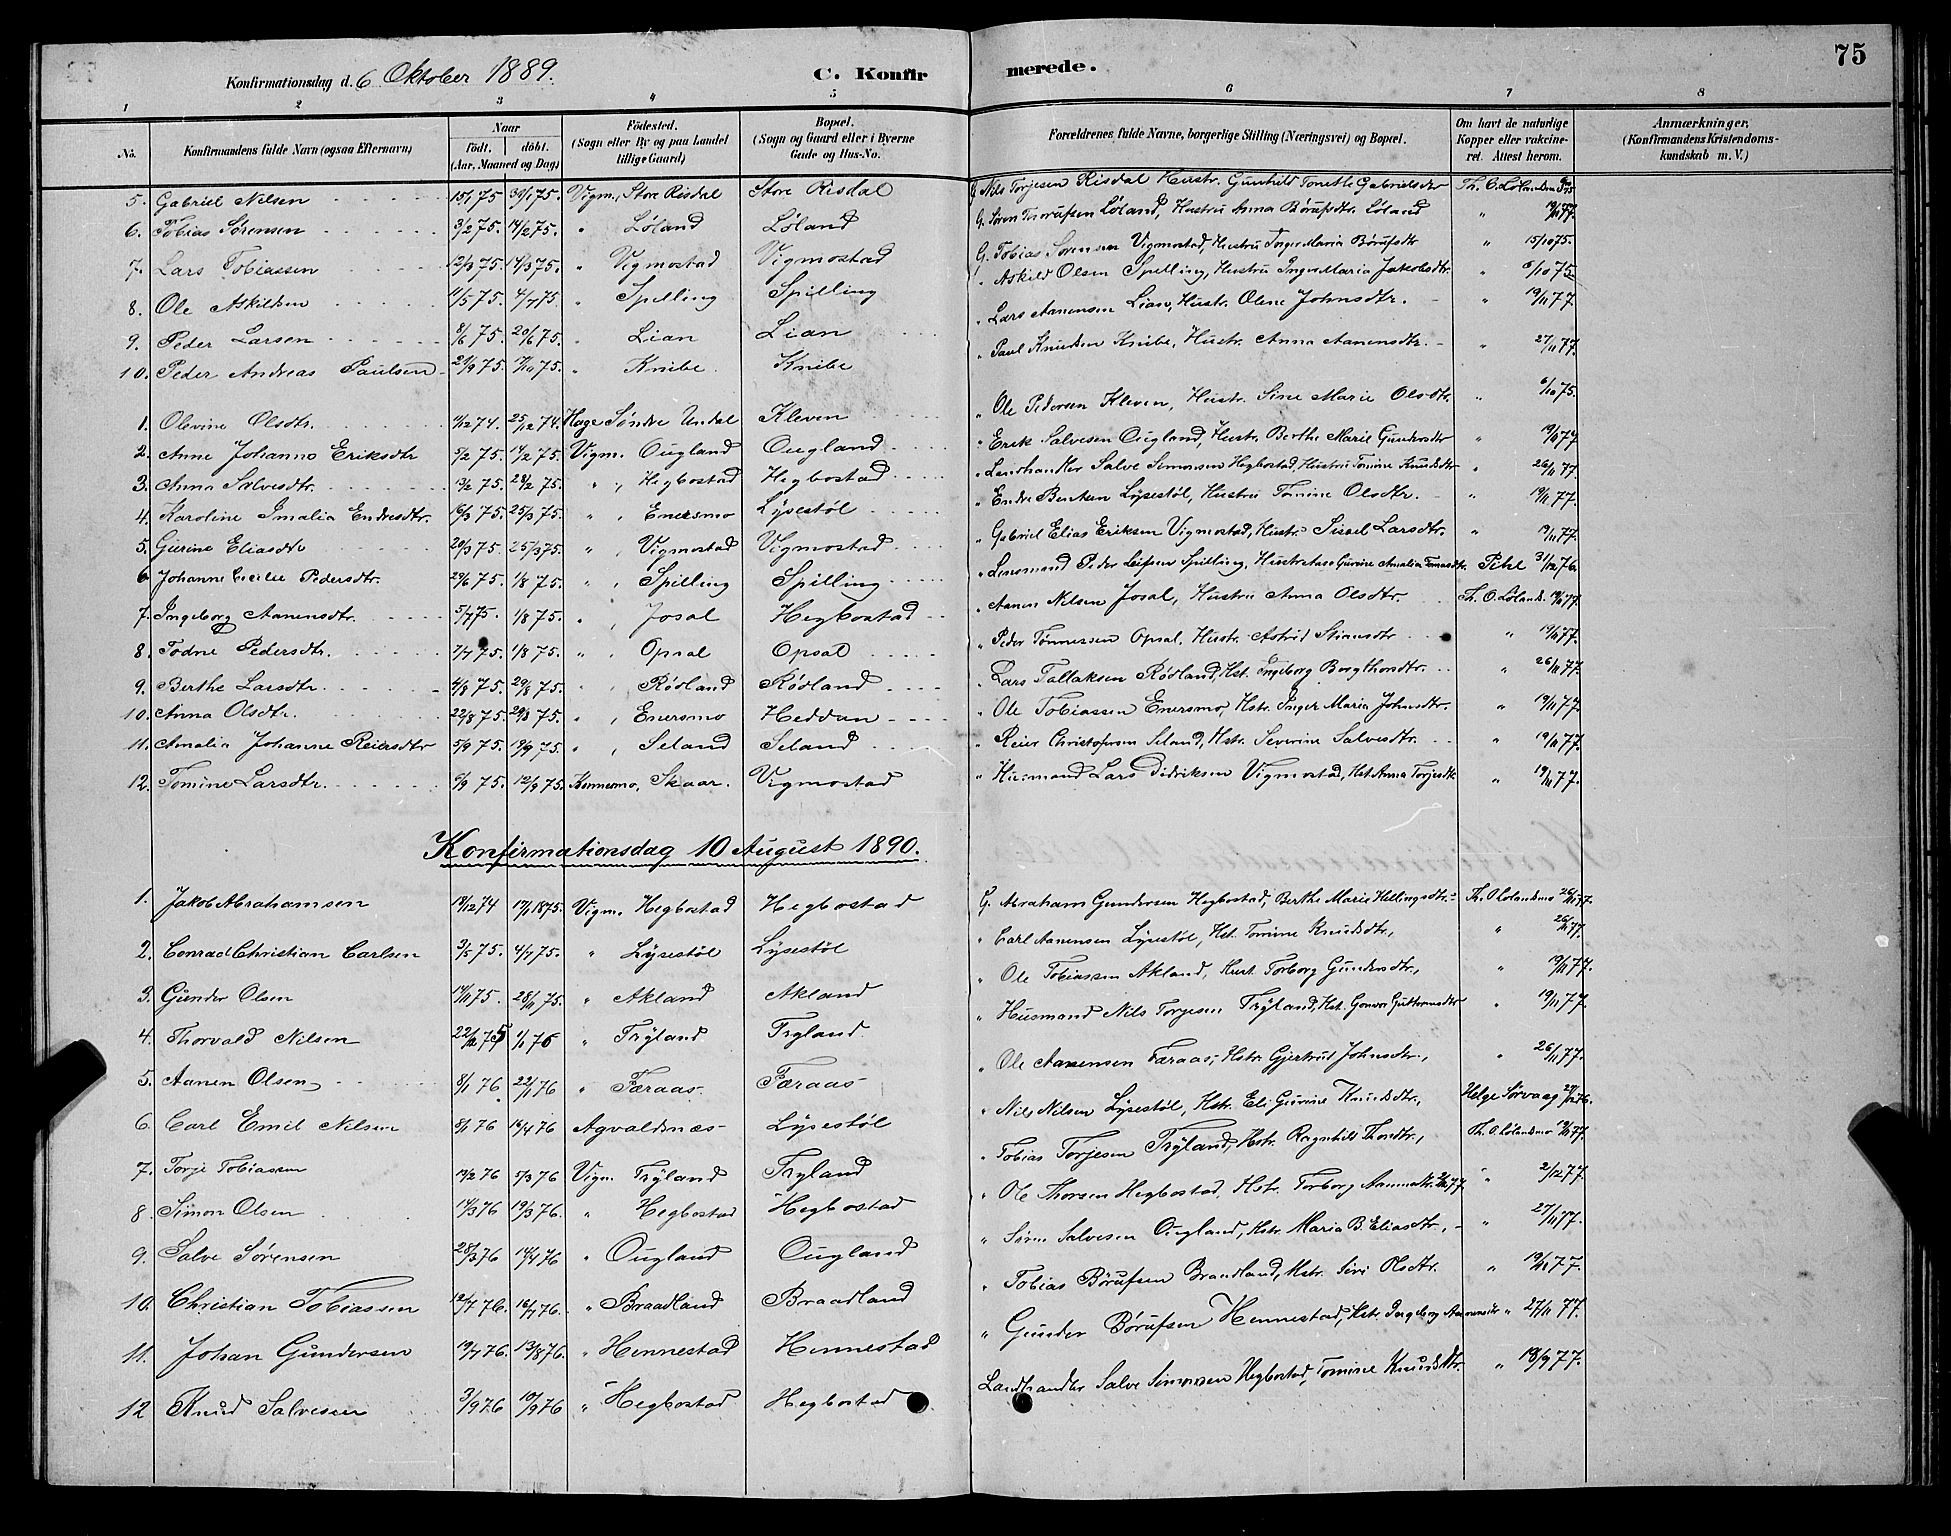 Konfirmationsdag d. 6 Oktober 1889. C. Konfirmerede. 75
1 2 3 4 5 6 7 8
No. Konfirmandens fulde Navn (ogsaa Efternavn) Naar født. døbt. (Aar, Maaned og Dag) Fødested. (Sogn eller By og paa Landet tillige Gaard) Bopæl. (Sogn og Gaard eller i Byerne Gade og Hus-No. Forældrenes fulde Navne, borgerlige Stilling (Næringsvei) og Bopæl. Om havt de naturlige Kopper eller vakcineret. Attest herom. Anmærkninger, (Konfirmandens Kristendomskundskab m. V.)
5. Gabriel Nilsen 15/1 75 30/1 75. Vigm., Store Risdal Store Risdal G. Nils Torjesen Risdal Hustr. Gunhild Tonette Gabrielsdtr Th. O. Lølandsmo
6. Tobias Sørensen 3/2 75. 14/2 75. " Løland Løland G. Søren Løland, Hustru Anna Børufsdtr. Løland " 19/11 77.
7. Lars Tobiassen 12/3 75. 14/3 75. " Vigmostad Vigmostad G. Tobias Sørensen Vigmostad, Hustru Inger Maria Børufsdtr " 15/10 75.
8. Ole Askildsen 11/5 75. 4/7 75. " Spilling Spilling " Askild Olsen Spilling, Hustru Inger Maria Jakobsdtr. " 6/10 75.
9. Peder Larsen 8/6 75. 20/6 75. " Lian Lian " Lars Aanensen Lian, Hustr. Olene Johnsdtr. " 19/11 77.
10. Peder Andreas Paulsen 21/9 75. 75. " Knibe. Knibe " Paul Knudsen Knibe, Hustr. Anna Aanensdtr. " 27/11 77.
1. Olevine Olsdtr. 11/12 74. 25/12 74. Hage Søndre Undal Kleven " Ole Pedersen Kleven, Hustr. Sine Marie Olsdtr. " 6/10 75.
2. Anne Johanne Eriksdtr 5/2 75. 14/2 75. Vigm. Ougland Ougland " Erik Salvesen Ougland, Hustr. Berthe Marie Gundersdtr " 19/11 77
3. Anna Salvesdtr. 13/2 75. 28/2 75. " " Hegbostad Hegbostad " Landhandler Salve Simonsen Hegbostad, Hustru Tomine Knudsdtr " 26/11 77.
4. Karoline Amalia Endresdtr. 16/3 75. 25/3 75. " " Enersmo Lysestøl " Endre Berntsen Lysestøl, Hustru Tomine Olsdtr. " 19/11 77.
5. Gurine Eliasdtr 20/3 75. 25/3 75. " " Vigmostad Vigmostad " Gabriel Elias Eriksen Vigmostad, Hustr. Sissel Larsdtr. " 19/11 77.
6 Johanne Cecilie Pedersdtr. 29/6 75. 1/8 75. " " Spilling Spilling " Lensmand Peder Leifsen Spilling, Gurine Amalia Tomasdtr. Pihl 31/12 76.
7. Ingeborg Aanensdtr. 5/7 75. 1/8 75. " " Josal Hegbostad " Aanen Nilsen Josal, Hustru Anna Olsdtr. Th. O. Lølands. 19/11 77.
8. Todne Pedersdtr. 7/7 75. 1/8 75. " " Opsal Opsal " Peder Tønnessen Opsal, Hustr. Astrid Stinesdtr " 19/11 77.
9. Berthe Larsdtr. 4/8 75. 29/8 75. " " Rødland Rødland " Lars Tallaksen Rødland, Hst. Ingeborg Bergthorsdtr. " 26/11 77.
10. Anna Olsdtr. 22/8 75. 29/8 75. " " Enersmo Heddan " Ole Tobiassen Enersmo, Hstr. Inger Maria Johnsdtr. " 19/11 77.
11. Amalia Johanne Reiersdtr 5/9 75. 19/9 75. " " Seland Seland " Reier Christofersen Seland, Hstr. Severine Salvesdtr. " 19/11 77.
12. Tomine Larsdtr. 6/9 75. 12/9 75. Konnesmo, Skaar. Vigmostad " Husmand Lars Didriksen Vigmostad, Hst. Anna Torjesdtr. " 19/11 77.
Konfirmationsdag 10 August 1890.
1. Jakob Abrahamsen 19/12 74 17/1 1875. Vigm. Hegbostad Hegbostad G. Abraham Gundersen Hegbostad, Berthe Marie Hellingsdtr. Th. O Lølandsmo 26/11 77.
2. Conrad Christian Carlsen 3/5 75. 4/7 75. " Lysestøl Lysestøl " Carl Aanensen Lysestøl, Hst. Tomine Knudsdtr., " 26/11 77.
3. Gunder Olsen 14/11 75. 28/11 75. " Akland Akland " Ole Tobiassen Akland, Hust. Torborg Gundersdtr., " 19/11 77.
4. Thorvald Nilsen 22/12 75 1/1 76 " Tryland Tryland " Husmand Nils Torjesen Tryland, Hst. Gonvor Guttormsdtr " 19/11 77.
5. Aanen Olsen 8/1 76. 22/1 76 " Færaas Færaas " Ole Aanensen Færaas, Hstr. Gjertrud Johnsdtr., " 26/11 77.
6. Carl Emil Nilsen 8/1 76 14/4 76 Agvaldsnæs Lysestøl " Nils Nilsen Lysestøl, Hstr. Eli Gurine Knudsdtr., Helge Sørvaag 76.
7. Torje Tobiassen 19/2 76 5/3 76 Vigm. Tryland Tryland " Tobias Torjesen Tryland, Hstr. Ragnhild Thorsdtr., Th. O. Lølandsmo 19/11 77.
8. Simon Olsen 14/3 76 19/3 76. " Hegbostad Hegbostad " Ole Thorsen Hegbostad, Hstr. Torborg " 2/12 77.
9. Salve Sørensen 28/3 76 14/4 76 " Ougland Ougland " Søren Salvesen Ougland, Hstr. Maria B. Eliasdtr., " 27/11 77.
10. Christian Tobiassen 12/7 76. 16/7 76. " Braadland Braadland " Tobias Børufsen Braadland, Hstr. Siri Olsdtr. " 19/11 77.
11. Johan Gundersen 19/7 76. 13/8 76. " Hennestad Hennestad " Gunder Børufsen Hennestad, Hstr. Ingeborg Aanensdtr " 27/11 77.
12 Knud Salvesen 3/9 76 10/9 76 " Hegbostad Hegbostad Landhandler Salve Simonsen Hegbostad, Tomine Knudsdtr. " 18/9 77.